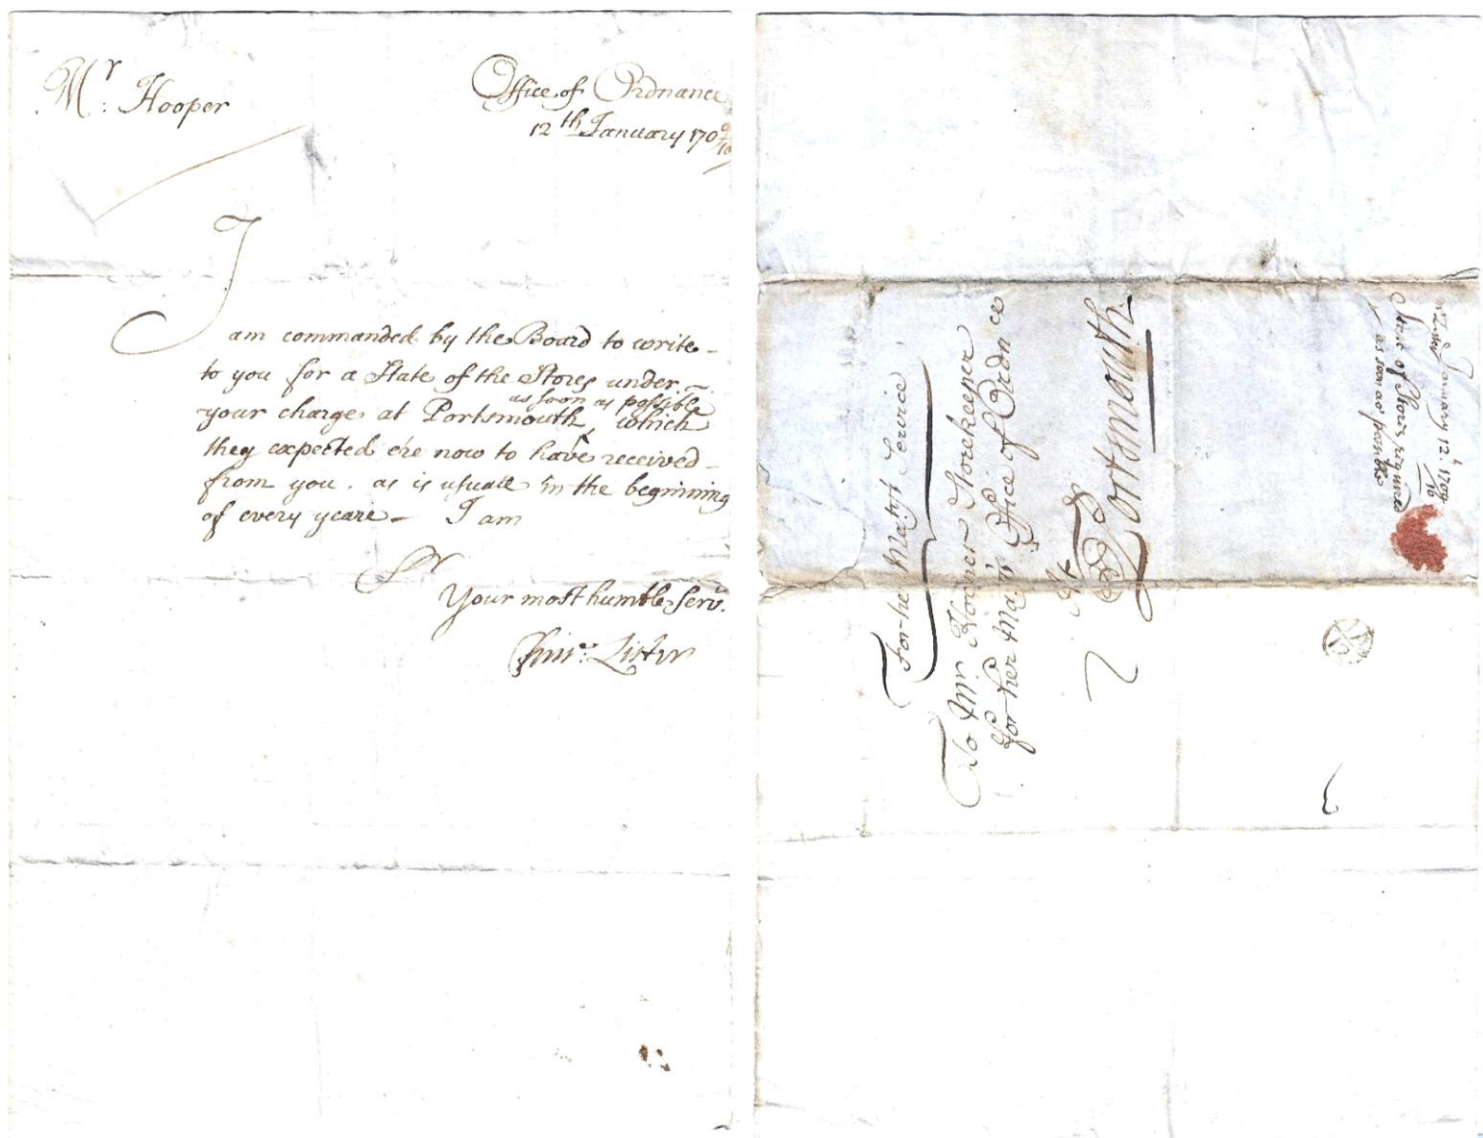 Mr: Hooper
Office of Ordnance
12th January 1709/10
I
am commanded by the Board to write
to you for a State of the Stores under
as soon as possible
your charge at Portsmouth, which
they expected e're now to have received
from you, as is usuall in the beginning
of every yeare - I am
Sr
Your most humble Serv.
Lister
For her Matys Service
To Mr. Hooper Storekeeper
for her Matys Office of Ordnance
At
Portsmouth
January 12th 1709/10
State of Stores required
as soon as possible